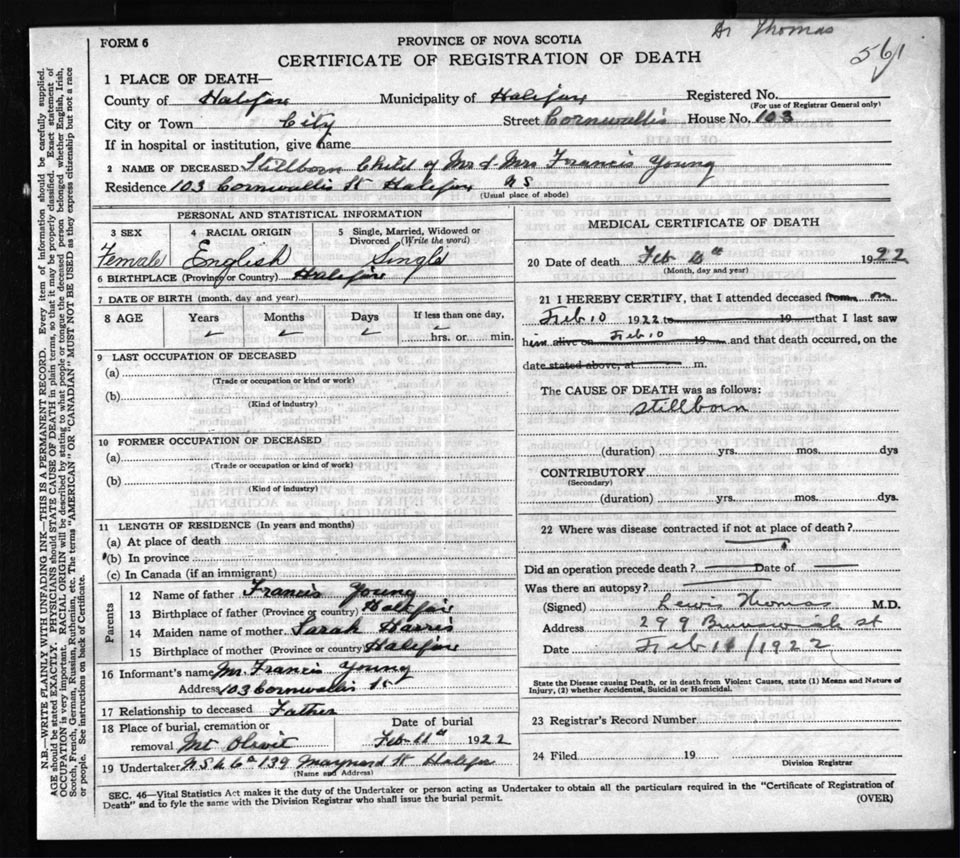 Dr Thomas
561
FORM 6
PROVINCE OF NOVA SCOTIA
CERTIFICATE OF REGISTRATION OF DEATH
1 PLACE OF DEATH—
County of Halifax Municipality of Halifax Registered No.
(For use of Registrar General only)
City or Town City Street Cornwallis House No. 103
If in hospital or institution, give name
2 NAME OF DECEASED Stillborn Child of Mr & Mrs Francis Young
Residence 103 Cornwallis St Halifax NS
(Usual place of abode)
PERSONAL AND STATISTICAL INFORMATION
3 SEX 4 RACIAL ORIGIN 5 Single, Married, Widowed or
Divorced (Write the word)
Female English Single
6 BIRTHPLACE (Province or Country) Halifax
7 DATE OF BIRTH (month, day and year)
8 AGE Years Months Days If less than one day,
hrs. or min.
9 LAST OCCUPATION OF DECEASED
(a)
(Trade or occupation or kind or work)
(b)
(Kind of industry)
10 FORMER OCCUPATION OF DECEASED
(a)
(Trade or occupation or kind or work)
(b)
(Kind of industry)
11 LENGTH OF RESIDENCE (In years and months)
(a) At place of death
(b) In province
(c) In Canada (if an immigrant)
Parents
12 Name of father Francis Young
13 Birthplace of father (Province or country) Halifax
14 Maiden name of mother Sarah Harris
15 Birthplace of mother (Province or country) Halifax
16 Informant's name Mr. Francis Young
Address 103 Cornwallis St
17 Relationship to deceased Father
18 Place of burial, cremation or Date of burial
removal Mt Olivit Feb 11th 1922
19 Undertaker N S U Co 139 Maynard St Halifax
(Name and Address)
MEDICAL CERTIFICATE OF DEATH
20 Date of death Feb 1922
(Month, day and year)
21 I HEREBY CERTIFY, that I attended deceased from on
Feb 10 1922 to 19 that I last saw
him alive on Feb 10 19 and that death occurred, on the
date stated above, at m.
The CAUSE OF DEATH was as follows:
stillborn
(duration) yrs. mos. dys
CONTRIBUTORY
(Secondary)
(duration) yrs. mos. dys.
22 Where was disease contracted if not at place of death?
Did an operation precede death? Date of
Was there an autopsy?
(Signed) Lewis Thomas M.D.
Address 299 Brunswick st
Date Feb 11/1922
State the Disease causing Death, or in death from Violent Causes, state (1) Means and Nature of
Injury, (2) whether Accidental, Suicidal or Homicidal.
23 Registrar's Record Number
24 Filed 19
Division Registrar
SEC. 46—Vital Statistics Act makes it the duty of the Undertaker or person acting as Undertaker to obtain all the particulars required in the "Certificate of Registration of
Death" and to fyle the same with the Division Registrar who shall issue the burial permit.
(OVER)
N.B.—WRITE PLAINLY WITH UNFADING INK—THIS IS A PERMANENT RECORD. Every item of information should be carefully supplied.
AGE should be stated EXACTLY. PHYSICIANS should STATE CAUSE OF DEATH in plain terms, so that it may be properly classified. Exact statement of
OCCUPATION is very important. RACIAL ORIGIN will be described by stating to what people or tongue the deceased person belonged, whether English, Irish,
Scotch, French, German, Russian, Ruthenian, etc. The terms "AMERICAN" OR "CANADIAN" MUST NOT BE USED as they express citizenship but not a race
or people. See instructions on back of Certificate.